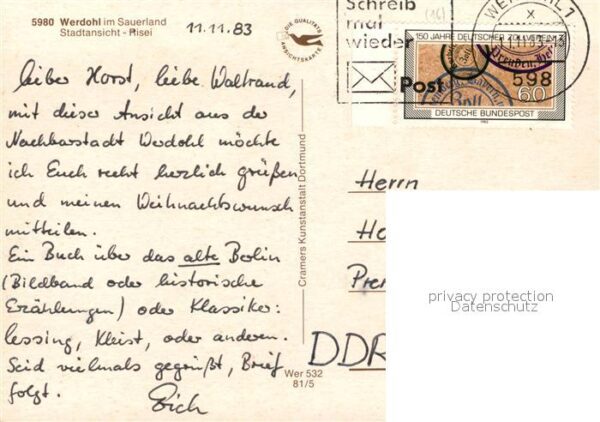 5980 Werdohl im Sauerland
Stadtansicht - Risei
11.11.83
Lieber Horst, liebe Waltraud,
mit dieser Ansicht aus der
Nachbarstadt Werdohl möchte
ich Euch recht herzlich grüßen
und meinen Weihnachtswunsch
mitteilen.
Ein Buch über das alte Berlin
(Bildband oder historische
Erzählungen) oder Klassiker:
Lessing, Kleist, oder anderen.
Seid vielmals gegrüßt, Brief
folgt.
Erich
DIE QUALITÄTS
ANSICHTSKARTE
Cramers Kunstanstalt Dortmund
Wer 532
81/5
Schreib
mal
wieder
Post
(16)
WERDOHL 1
11.11.83
598
150 JAHRE DEUTSCHER ZOLLVEREIN
Zoll
60
DEUTSCHE BUNDESPOST
Herrn
DDR
privacy protection
Datenschutz